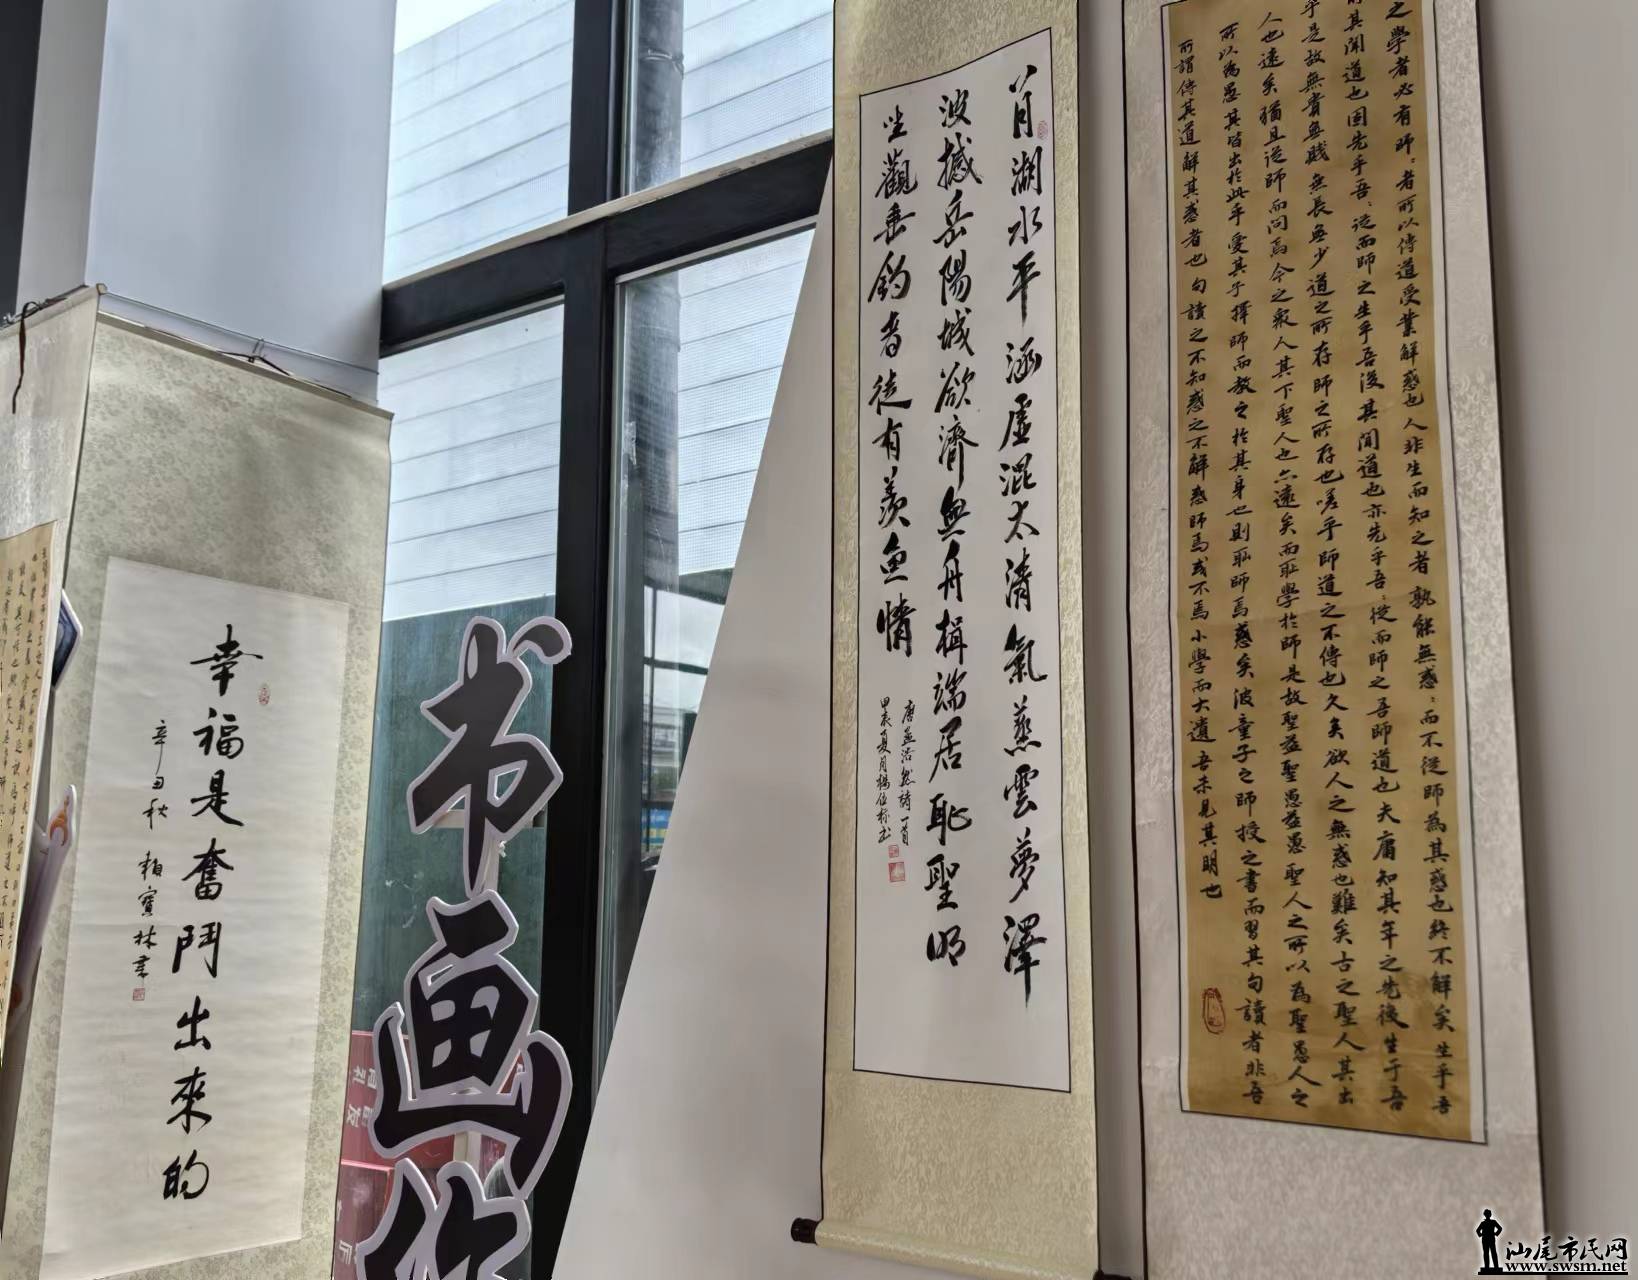 之學者必有師：者所以傳道受業解惑也人非生而知之者孰能無惑：而不從師為其惑也終不解矣生乎吾
其聞道也固先乎吾：從而師之生乎吾後其聞道也亦先乎吾：從而師之吾師道也夫庸知其年之先後生于吾
乎是故無貴無賤無長無少道之所存師之所存也嗟乎師道之不傳也久矣欲人之無惑也難矣古之聖人其出
人也遠矣猶且從師而問焉今之衆人其下聖人也亦遠矣而恥學於師是故聖益聖愚益愚聖人之所以為聖愚人之
所以為愚其皆出於此乎愛其子擇師而教之於其身也則恥師焉惑矣彼童子之師授之書而習其句讀者非吾
所謂傳其道解其惑者也句讀之不知惑之不解惑師焉或不焉小學而大遺吾未見其明也
八月湖水平涵虛混太清氣蒸雲夢澤
波撼岳陽城欲濟無舟楫端居恥聖明
坐觀垂釣者徒有羨魚情
唐孟浩然詩一首
甲辰夏月楊位標书
书画作
幸福是奮鬥出來的
辛丑秋 賴寶林書
汕尾市民网
www.swsm.net